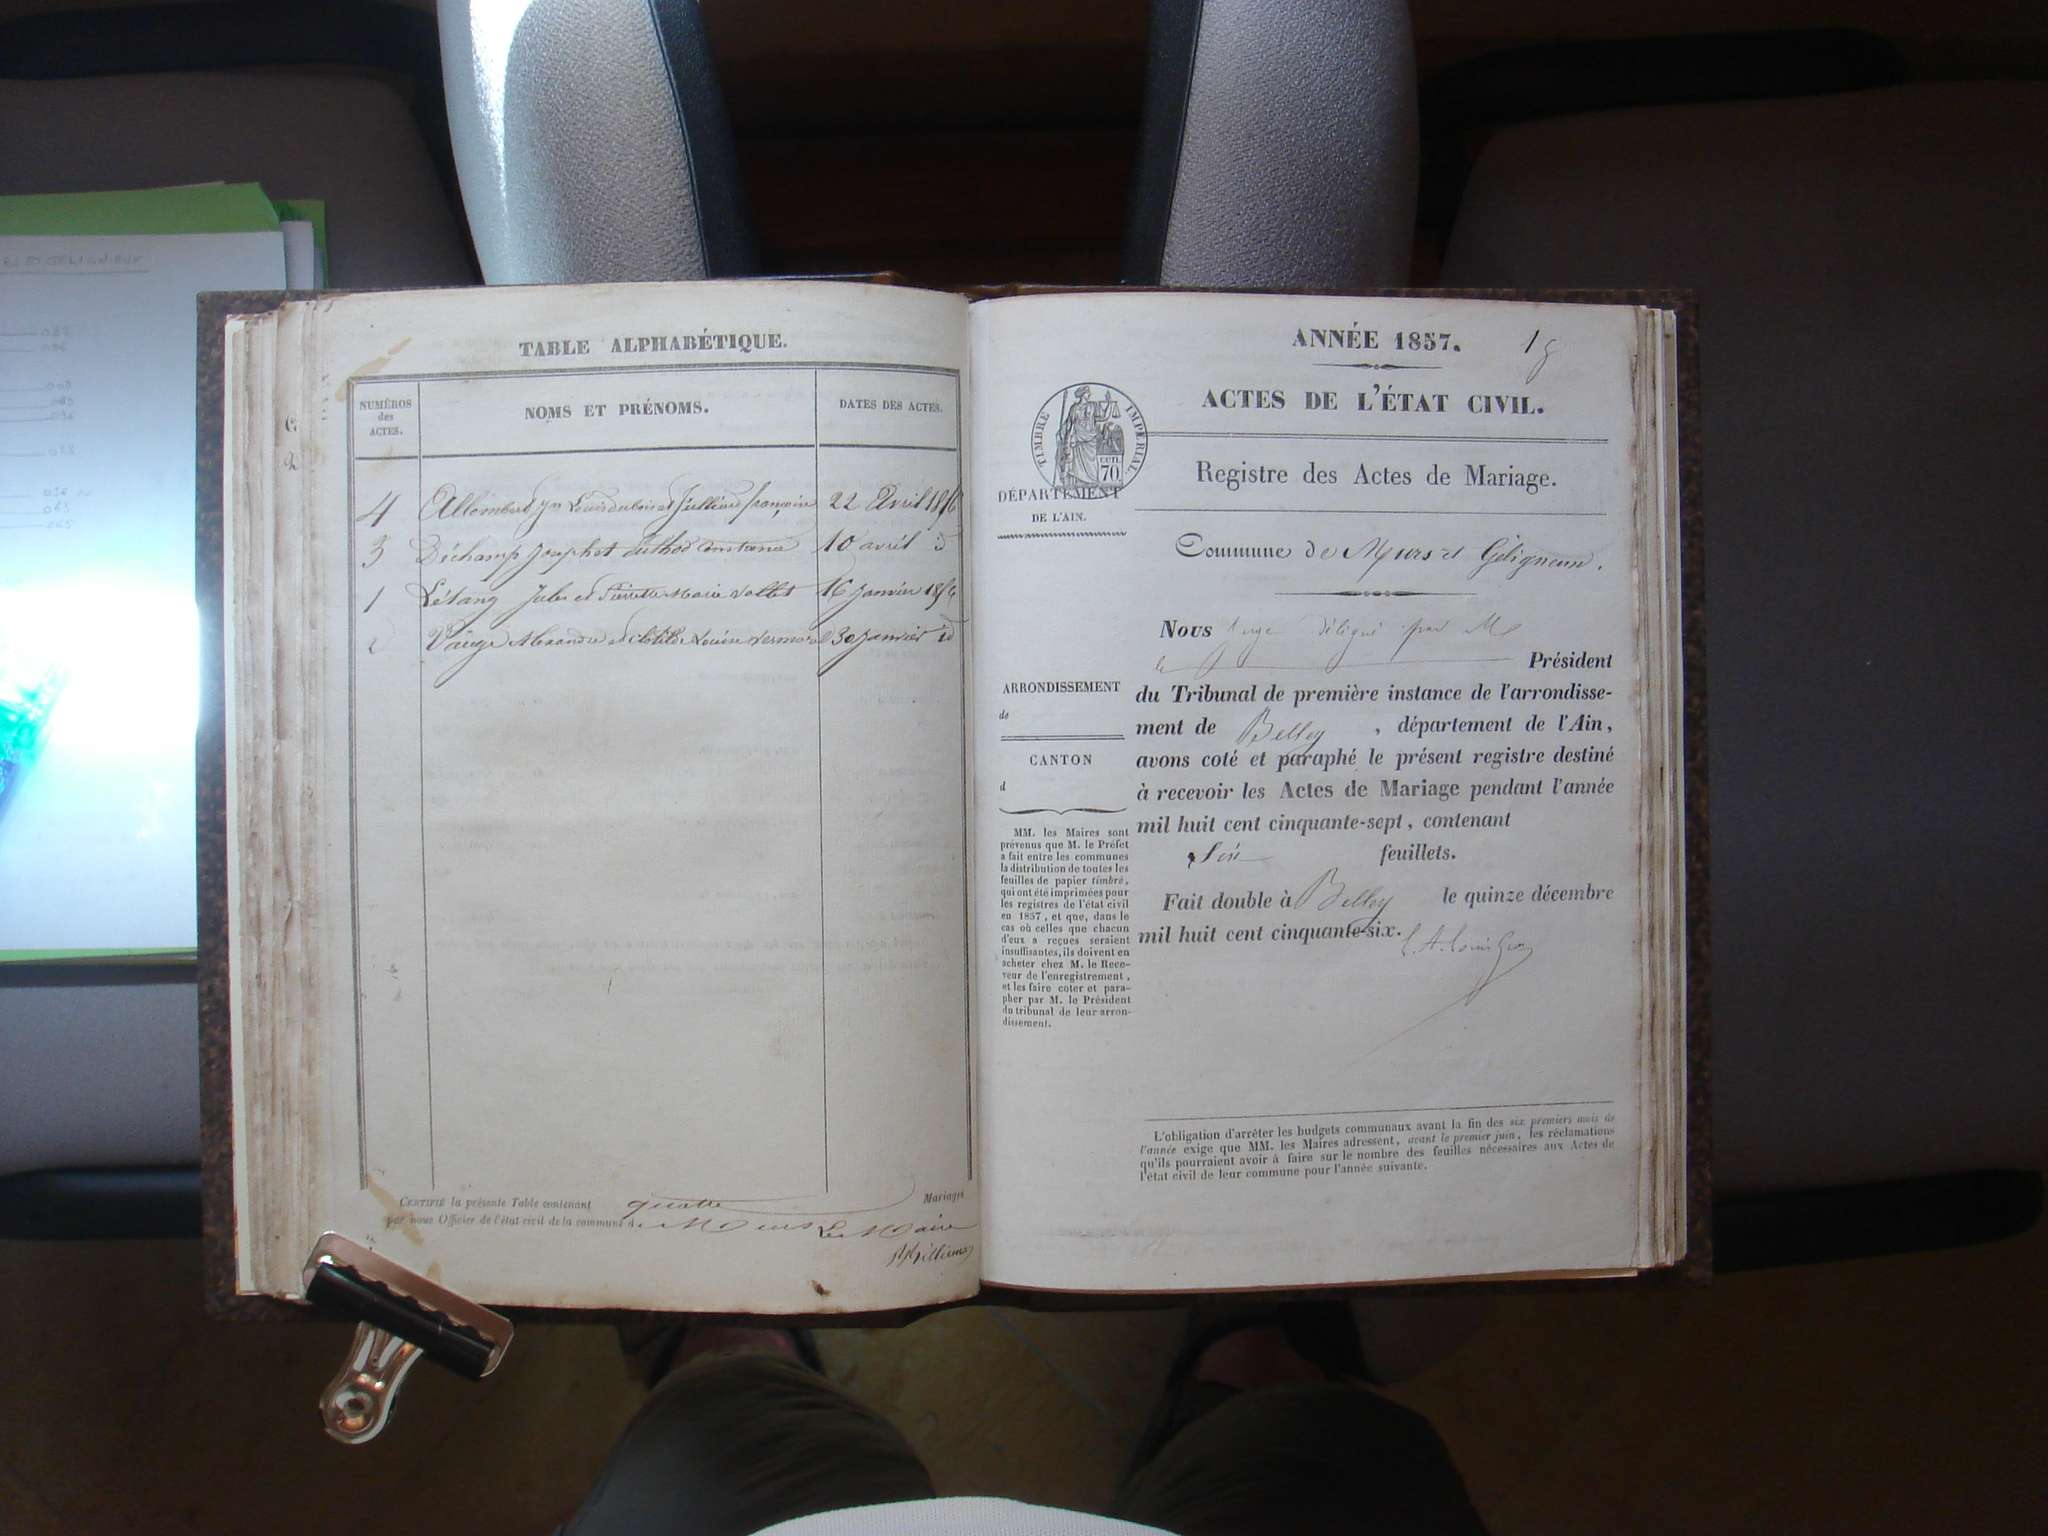 TABLE ALPHABÉTIQUE.
NUMÉROS
des
ACTES.
NOMS ET PRÉNOMS.
DATES DES ACTES.
4 Allombert Louis et françoise 22 Avril 1856
3 Déchamp Joseph et Constance 10 avril id
1 Létang Jules et Pierrette Marie Vallet 16 Janvier 1856
2 Alexandre et Clotilde 30 Janvier id
CERTIFIÉ la présente Table contenant quatre Mariages
par nous Officier de l'état civil de la commune de Murs Le Maire
Millieux
ANNÉE 1857.
1
ACTES DE L'ÉTAT CIVIL.
TIMBRE IMPÉRIAL.
CEN.
70
Registre des Actes de Mariage.
DÉPARTEMENT
DE L'AIN.
Commune de Murs et Gélignieux.
ARRONDISSEMENT
de
CANTON
d
MM. les Maires sont
prévenus que M. le Préfet
a fait entre les communes
la distribution de toutes les
feuilles de papier timbré,
qui ont été imprimées pour
les registres de l'état civil
en 1857, et que, dans le
cas où celles que chacun
d'eux a reçues seraient
insuffisantes, ils doivent en
acheter chez M. le Rece-
veur de l'enregistrement,
et les faire coter et para-
pher par M. le Président
du tribunal de leur arron-
dissement.
Nous Juge délégué par Mr
le Président
du Tribunal de première instance de l'arrondisse-
ment de Belley, département de l'Ain,
avons coté et paraphé le présent registre destiné
à recevoir les Actes de Mariage pendant l'année
mil huit cent cinquante-sept, contenant
Six feuillets.
Fait double à Belley le quinze décembre
mil huit cent cinquante-six.
L'obligation d'arrêter les budgets communaux avant la fin des six premiers mois de
l'année exige que MM. les Maires adressent, avant le premier juin, les réclamations
qu'ils pourraient avoir à faire sur le nombre des feuilles nécessaires aux Actes de
l'état civil de leur commune pour l'année suivante.